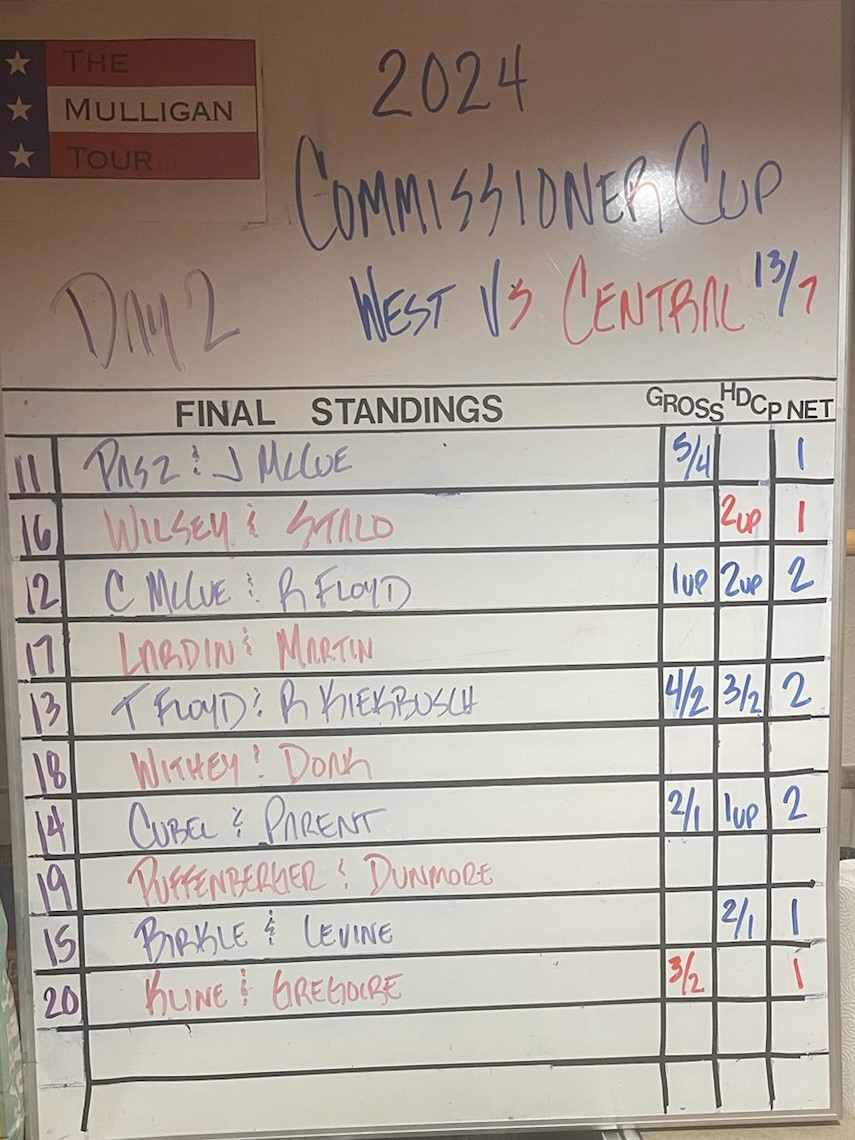 THE
MULLIGAN
TOUR
2024
COMMISSIONER CUP
DAY 2
WEST VS CENTRAL 13/7
FINAL STANDINGS GROSS HDCP NET
11 PASZ & J MCCUE 5/4 1
16 WILSEY & STALO 2UP 1
12 C MCCUE & R FLOYD 1UP 2UP 2
17 LARDIN & MARTIN
13 T FLOYD & R KIEKBUSCH 4/2 3/2 2
18 WITHEY & DONK
14 CUBEL & PARENT 2/1 1UP 2
19 PUFFENBERGER & DUNMORE
15 BIRKLE & LEVINE 2/1 1
20 KLINE & GREGOIRE 3/2 1